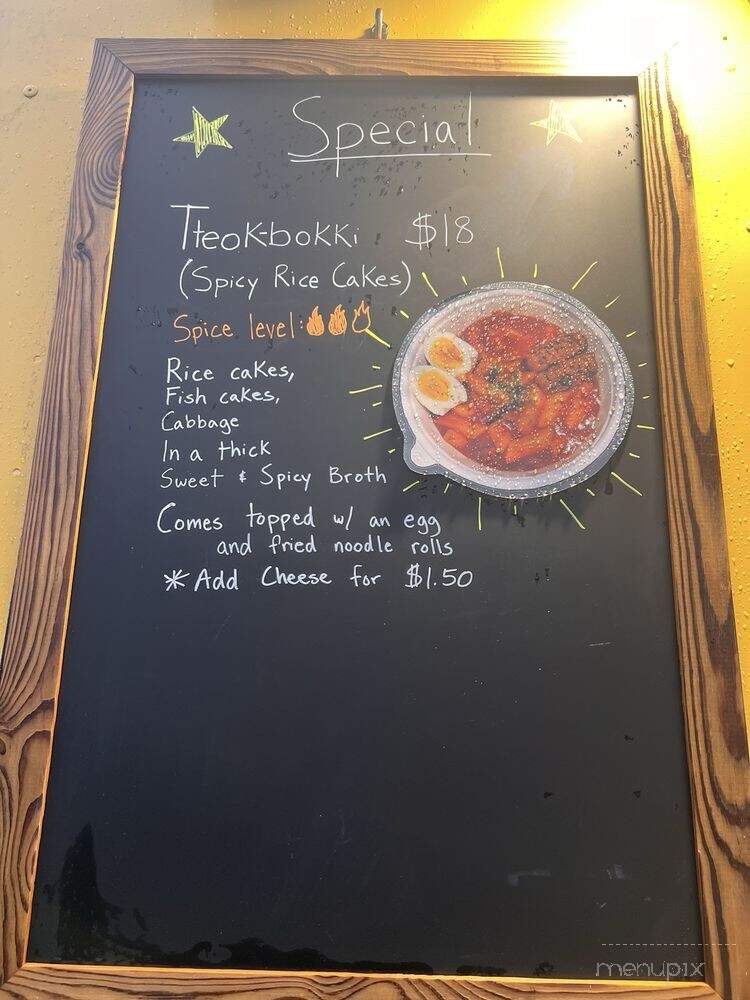 Special
Tteok-bokki $18
(Spicy Rice Cakes)
Spice level:
Rice cakes,
Fish cakes,
Cabbage
In a thick
Sweet & Spicy Broth
Comes topped w/ an egg
and fried noodle rolls
*Add Cheese for $1.50
menupix